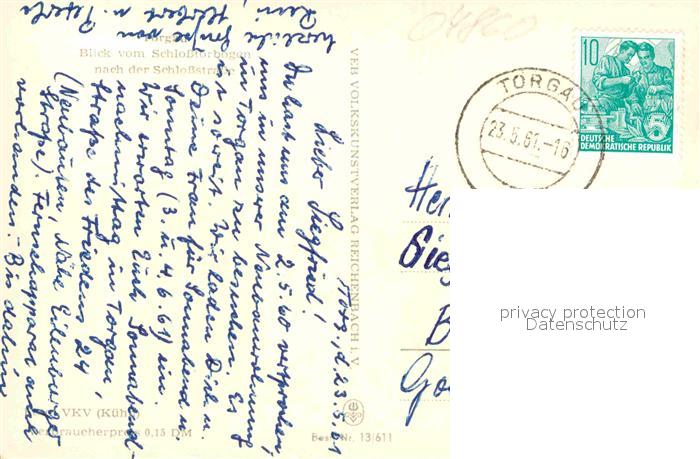 Torgau, d. 23.5.61
Lieber Siegfried!
Du hast uns am 2.5.60 versprochen,
uns in unserer Neubauwohnung
in Torgau zu besuchen. Es ist
nun soweit. Wir laden Dich u.
Deine Frau für Sonnabend u.
Sonntag (3. u. 4.6.61) ein.
Wir erwarten Euch Sonnabend-
nachmittag in Torgau,
Straße des Friedens 24
(Neubauten, Nähe Eilenburger
Straße). Fernsehapparat auch
vorhanden. – Bis dahin
herzliche Grüße von
Torgau
Blick vom Schloßtorbogen
nach der Schloßstraße
VEB VOLKSKUNSTVERLAG REICHENBACH i. V.
VKV (Kühn)
Verbraucherpreis 0,15 DM
Best.-Nr. 13/611
04860
TORGAU
23.5.61.-16
10
DEUTSCHE
DEMOKRATISCHE REPUBLIK
5
privacy protection
Datenschutz